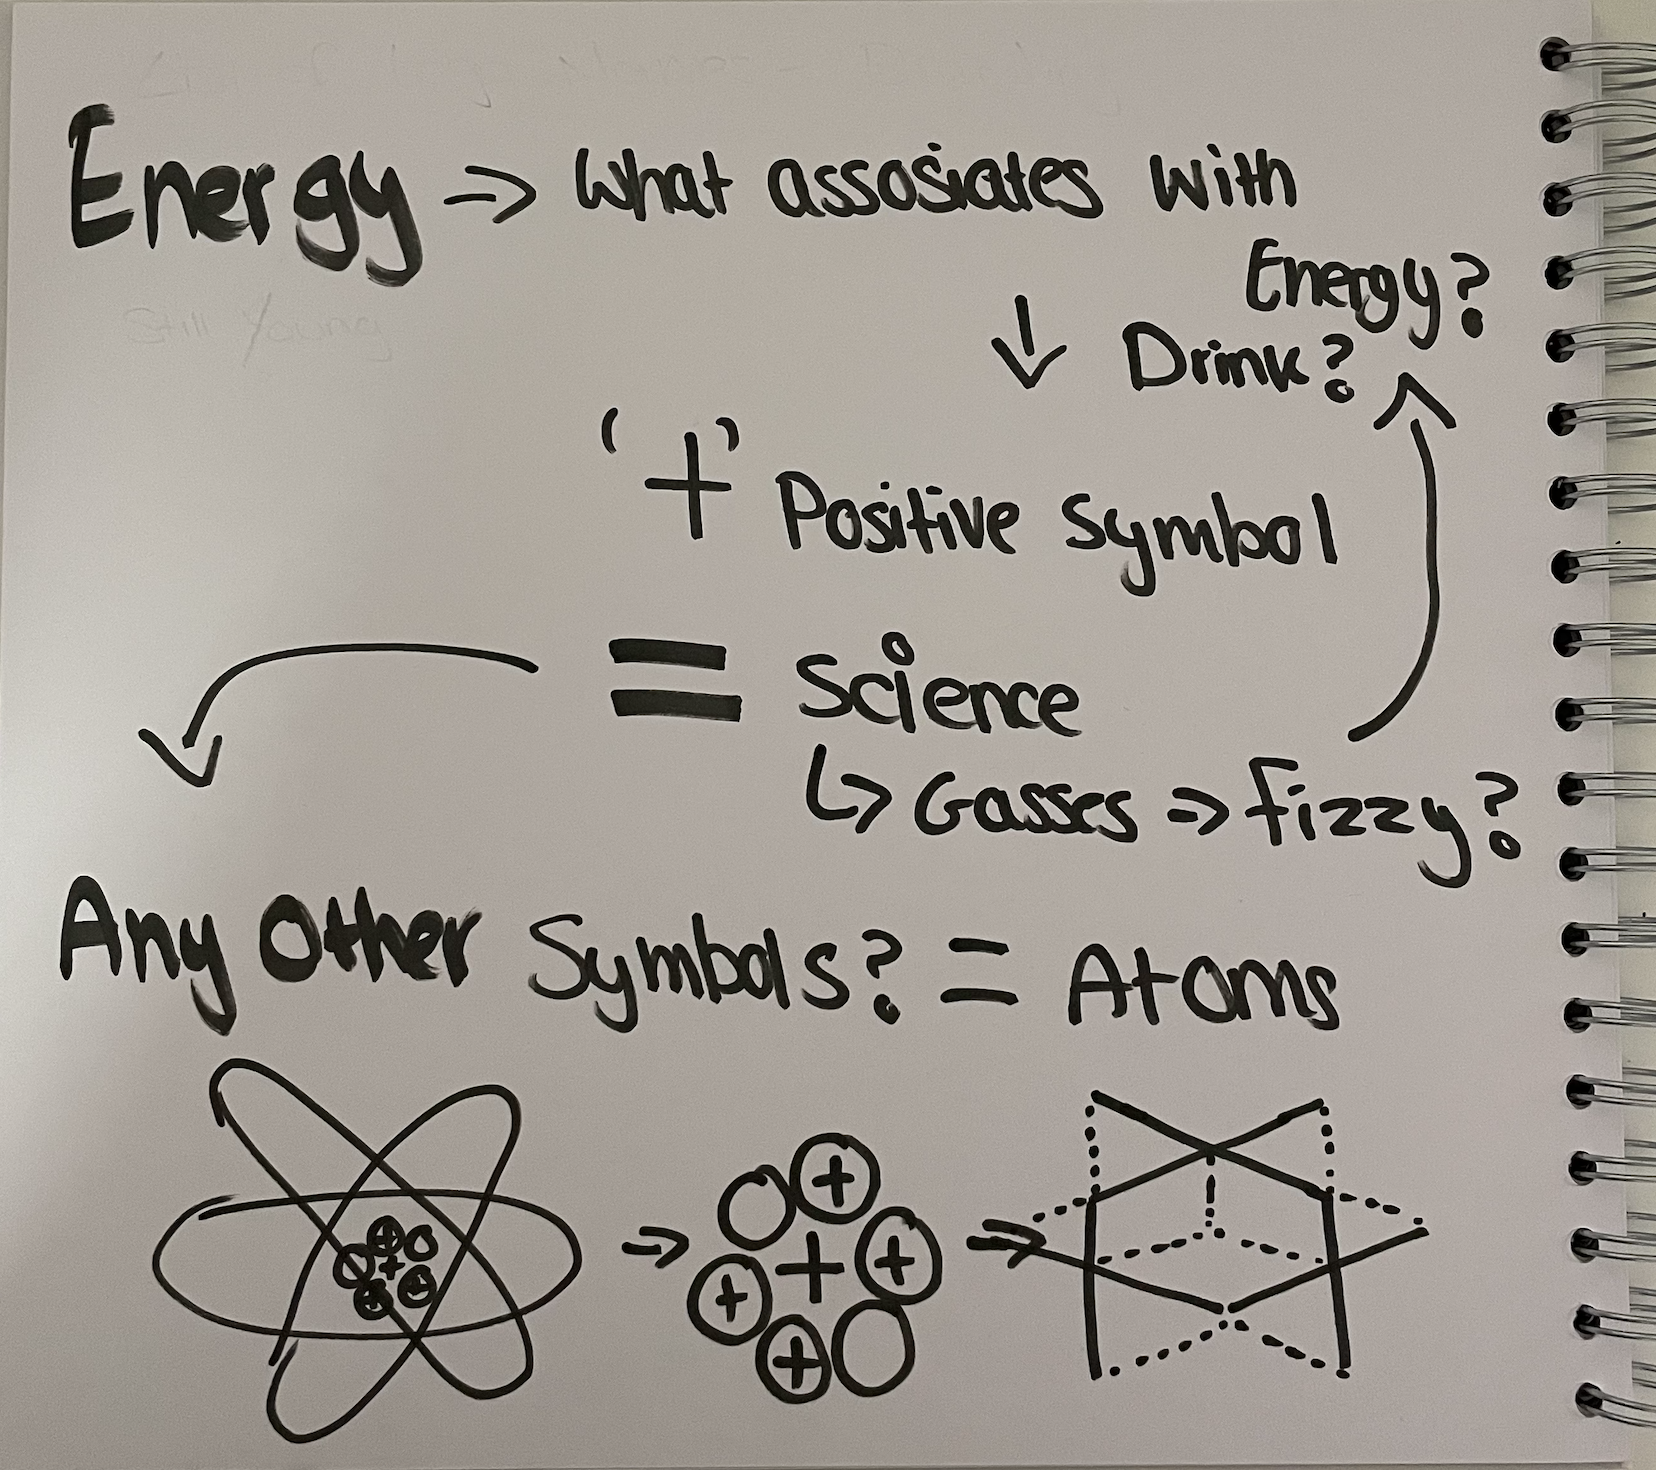 Energy => What assosiates with
Energy?
↓ Drink?
'+' Positive Symbol
= Science
↳ Gasses => Fizzy?
Any Other Symbols? = Atoms
Still Young